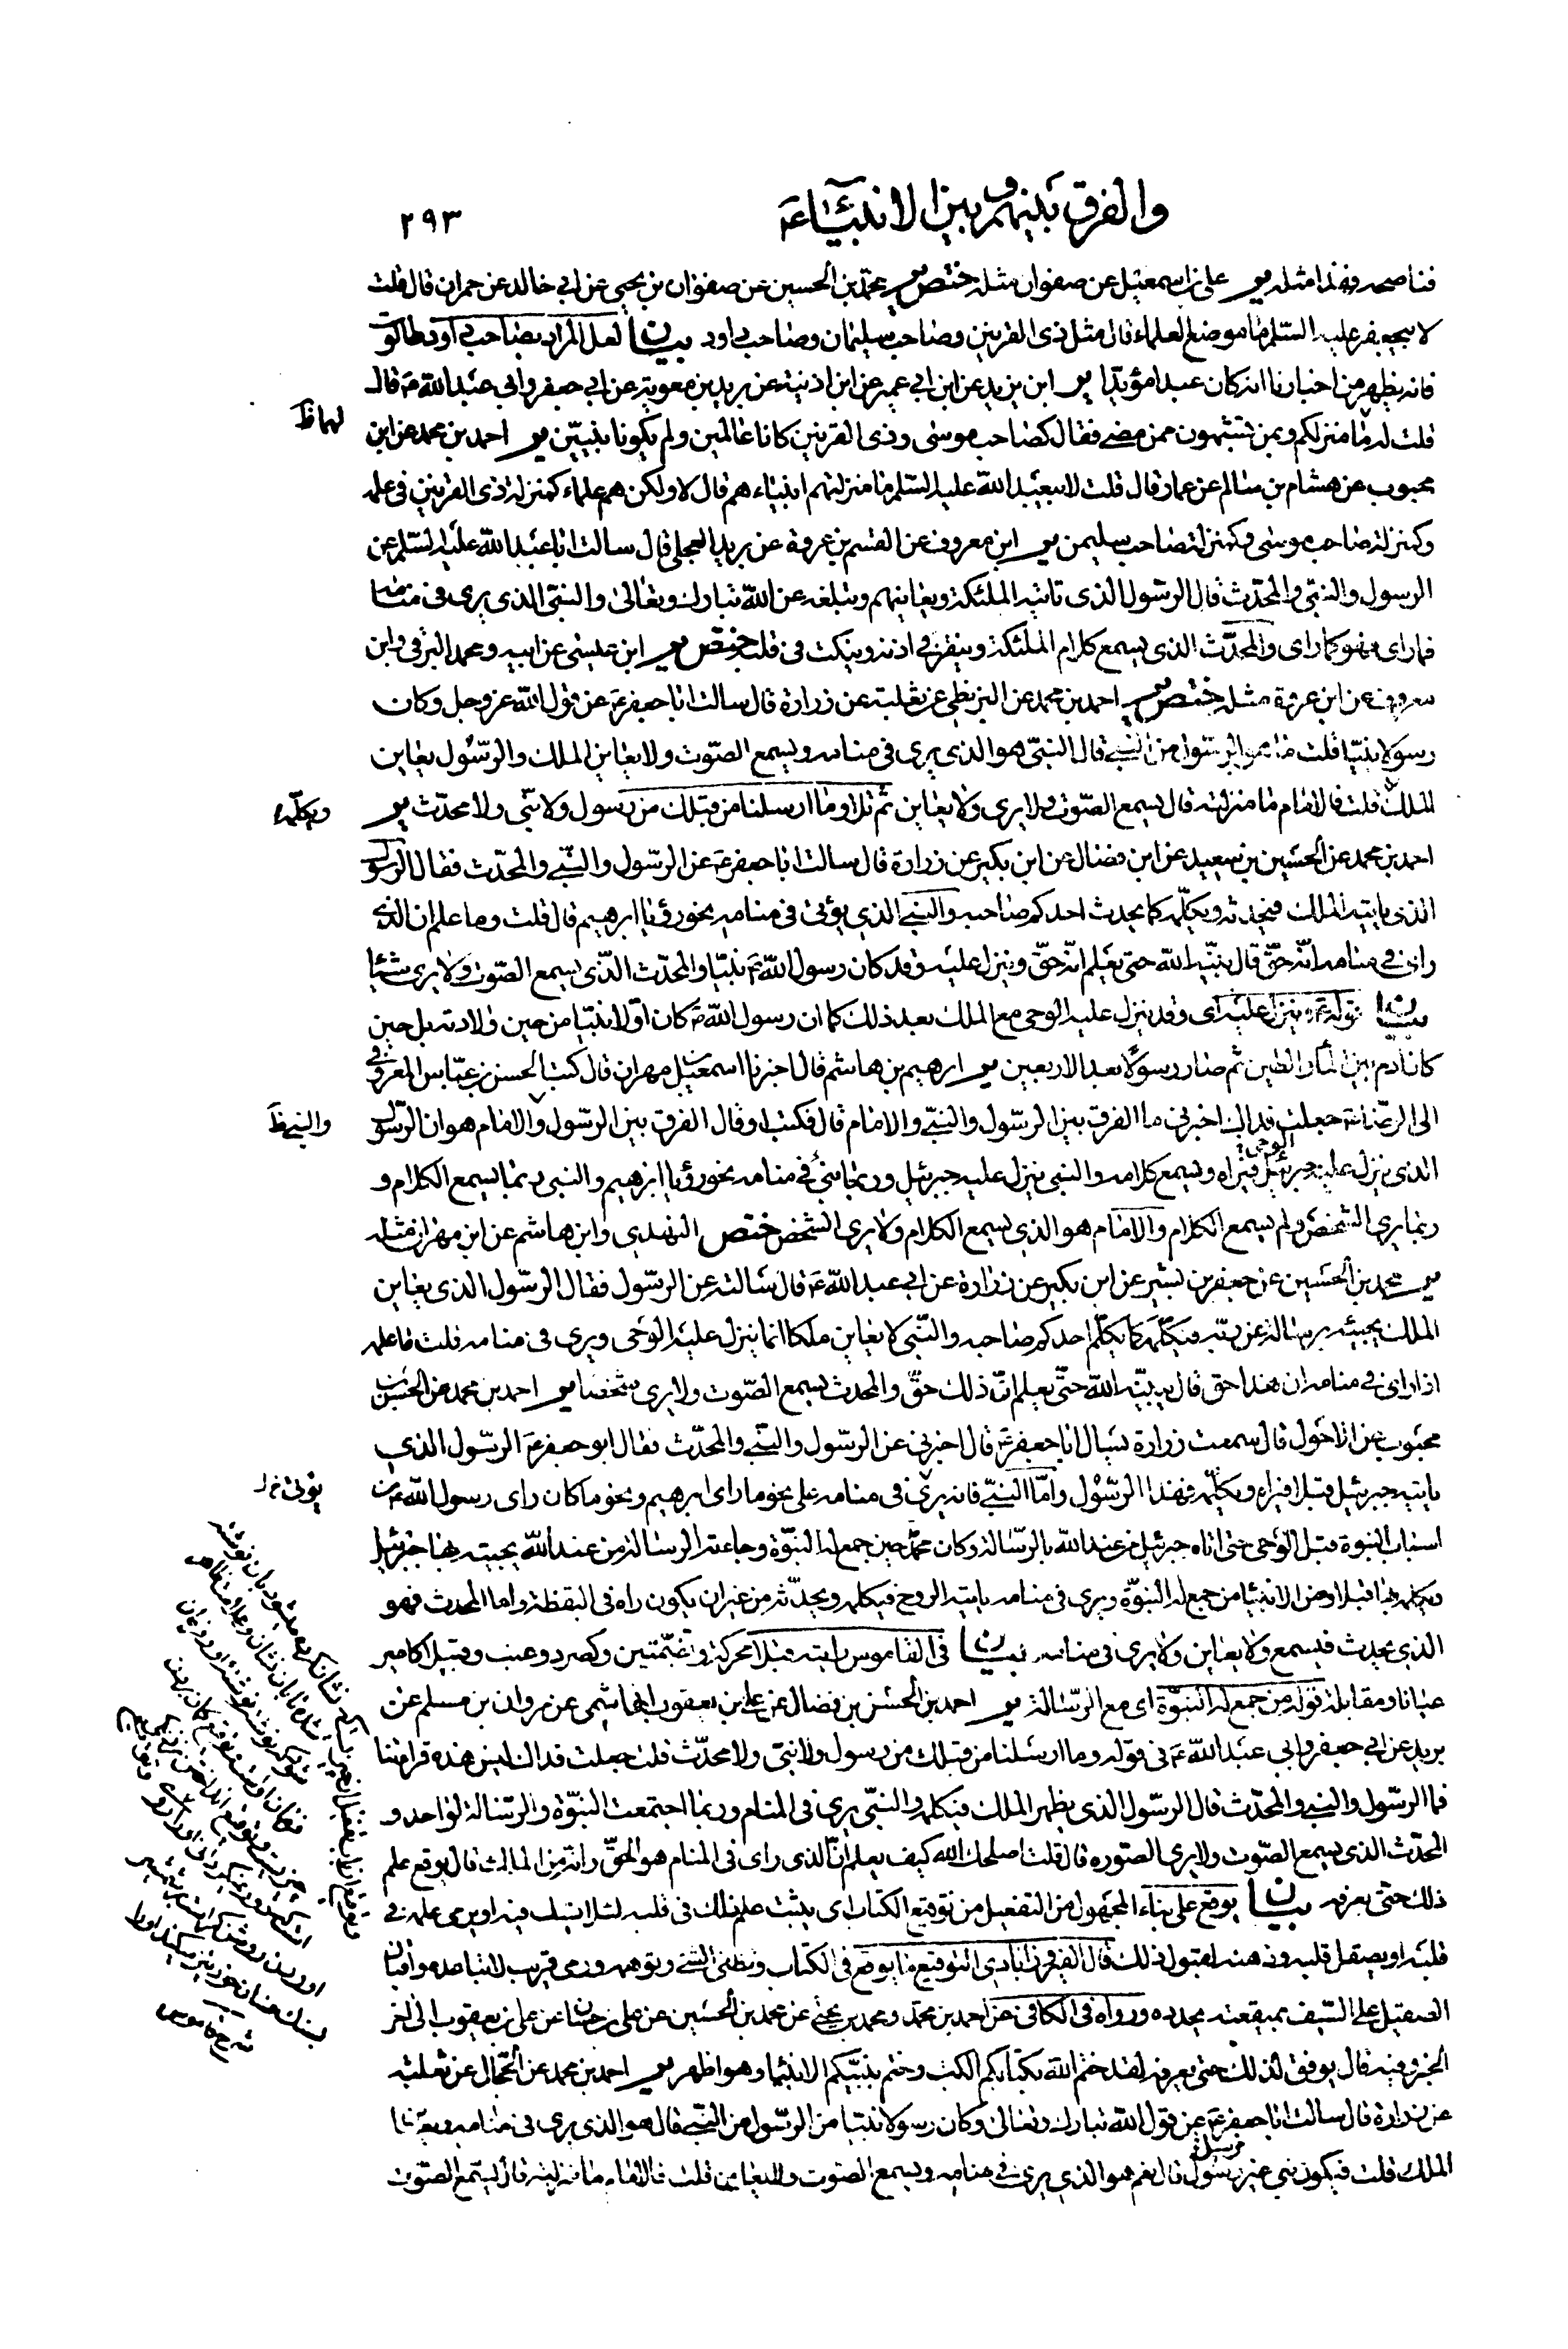 والفرق بينهم وبين الانبياء ع
٢٩٣
فناصحه فهذا مثله ير علي بن اسمعيل عن صفوان مثله ختص ير محمد بن الحسين عن صفوان بن يحيى عن ابي خالد عن حمران قال قلت
لابيجعفر عليه السلم ما موضع العلماء قال مثل ذي القرنين وصاحب سليمان وصاحب داود بيان لعل المراد بصاحب داود طالوت
فانه يظهر من اخبارنا انه كان عبدا مؤيدا ير ابن يزيد عن ابن ابي عمير عن ابن اذينة عن بريد بن معوية عن ابي جعفر وابي عبد الله ع قال
لهما ظ
قلت له ما منزلكم وبمن تشبهون ممن مضى فقال كصاحب موسى وذي القرنين كانا عالمين ولم يكونا نبيين ير احمد بن محمد عن ابن
محبوب عن هشام بن سالم عن عمار قال قلت لابيعبد الله عليه السلم ما منزلتهم انبياء هم قال لا ولكن هم علماء كمنزلة ذي القرنين في علمه
وكمنزلة صاحب موسى وكمنزلة صاحب سليمن ير ابن معروف عن القسم بن عروة عن بريد العجلي قال سالت ابا عبد الله عليه السلم عن
الرسول والنبي والمحدث قال الرسول الذي تاتيه الملئكة ويعاينهم وتبلغه عن الله تبارك وتعالى والنبي الذي يرى في منامه
فما راى فهو كما راى والمحدث الذي يسمع كلام الملئكة وينقر في اذنه وينكت في قلبه ختص ير ابن عيسى عن ابيه ومحمد البرقي وابن
معروف عن ابن عروة مثله ختص ير احمد بن محمد عن البزنطي عن ثعلبة عن زرارة قال سالت ابا جعفر ع عن قول الله عز وجل وكان
رسولا نبيا قلت ما هو الرسول من النبي قال النبي هو الذي يرى في منامه ويسمع الصوت ولا يعاين الملك والرسول يعاين
الملك قلت فالامام ما منزلته قال يسمع الصوت ولا يرى ولا يعاين ثم تلا وما ارسلنا من قبلك من رسول ولا نبي ولا محدث ير
ويكلمه
احمد بن محمد عن الحسين بن سعيد عن ابن فضال عن ابن بكير عن زرارة قال سالت ابا جعفر ع عن الرسول والنبي والمحدث فقال الرسول
الذي ياتيه الملك فيحدثه ويكلمه كما يحدث احدكم صاحبه والنبي الذي يؤتى في منامه نحو رؤيا ابرهيم قال قلت وما علم ان الذي
راى في منامه انه حق قال يبينه الله حتى يعلم انه حق وينزل عليه وقد كان رسول الله ص نبيا والمحدث الذي يسمع الصوت ولا يرى شيئا
بيان قوله ع وينزل عليه اى وقد ينزل عليه الوحي مع الملك بعد ذلك كما ان رسول الله ص كان اولا نبيا من حين ولادته بل حين
كان ادم بين الماء والطين ثم صار رسولا بعد الاربعين ير ابرهيم بن هاشم قال اخبرنا اسمعيل بن مهران قال كتب الحسن بن عباس المعروفي
الى الرضا ع جعلت فداك اخبرني ما الفرق بين الرسول والنبي والامام قال فكتب او قال الفرق بين الرسول والامام هو ان الرسول
والنبي ظ
الذي ينزل عليه جبرئيل فيراه ويسمع كلامه والنبي ينزل عليه جبرئيل وربما نبئ في منامه نحو رؤيا ابرهيم والنبي ربما يسمع الكلام و
الوحي
ربما يرى الشخص ولم يسمع الكلام والامام هو الذي يسمع الكلام ولا يرى الشخص ختص النهدي وابن هاشم عن ابن مهران مثله
ير محمد بن الحسين عن جعفر بن بشير عن ابن بكير عن زرارة عن ابي عبد الله ع قال سالته عن الرسول فقال الرسول الذي يعاين
الملك يجيئه برسالة عن ربه فيكلمه كما يكلم احدكم صاحبه والنبي لا يعاين ملكا انما ينزل عليه الوحي ويرى في منامه قلت ما علمه
اذا راى في منامه ان هذا حق قال يبينه الله حتى يعلم ان ذلك حق والمحدث يسمع الصوت ولا يرى شخصا ير احمد بن محمد عن الحسن بن
محبوب عن الاحول قال سمعت زرارة يسال ابا جعفر ع قال اخبرني عن الرسول والنبي والمحدث فقال ابو جعفر ع الرسول الذي
ياتيه جبرئيل قبلا فيراه ويكلمه فهذا الرسول واما النبي فانه يرى في منامه على نحو ما راى ابرهيم ونحو ما كان راى رسول الله ص من
اسباب النبوة قبل الوحي حتى اتاه جبرئيل من عند الله بالرسالة وكان محمد حين جمع له النبوة وجاءته الرسالة من عند الله يجيئه بها جبرئيل
ويكلمه بها قبلا ومن الانبياء من جمع له النبوة ويرى في منامه ياتيه الروح فيكلمه ويحدثه من غير ان يكون راه في اليقظة واما المحدث فهو
الذي يحدث فيسمع ولا يعاين ولا يرى في منامه بيان في القاموس رايته قبلا محركة وبضمتين وكصرد وعنب وقبيلا كامير
عيانا ومقابلة قوله من جمع له النبوة اى مع الرسالة ير احمد بن الحسن بن فضال عن علي بن يعقوب الهاشمي عن مروان بن مسلم عن
بريد عن ابي جعفر وابي عبد الله ع في قوله وما ارسلنا من قبلك من رسول ولا نبي ولا محدث قلت جعلت فداك ليس هذه قراءتنا
فما الرسول والنبي والمحدث قال الرسول الذي يظهر الملك فيكلمه والنبي يرى في المنام وربما اجتمعت النبوة والرسالة لواحد و
المحدث الذي يسمع الصوت ولا يرى الصورة قال قلت اصلحك الله كيف يعلم ان الذي راى في المنام هو الحق وانه من الملك قال يوقع علم
ذلك حتى يعرفه بيان يوقع على بناء المجهول من التفعيل من توقيع الكتاب اى يثبت علم ذلك في قلبه لئلا ينسى فيه او يرمى علمه في
قلبه او يصقل قلبه وذهنه لقبول ذلك قال الفيروزابادي التوقيع ما يوقع في الكتاب وتظني الشئ وتوهمه ورمي قريب لا تباعده واقبال
الصيقل على السيف بميقعته يحدده ورواه في الكافي عن احمد بن محمد ومحمد بن يحيى عن محمد بن الحسين عن علي بن حسان عن علي بن يعقوب الى اخر
الخبر وفيه قال يوفق لذلك حتى يعرفه لقد ختم الله بكتابكم الكتب وختم بنبيكم الانبياء وهو اظهر ير احمد بن محمد عن الحجال عن ثعلبة
عن زرارة قال سالت ابا جعفر ع عن قول الله تبارك وتعالى وكان رسولا نبيا من الرسول من النبي قال هو الذي يرى في منامه ويعاين
الملك قلت فيكون نبي غير رسول قال نعم هو الذي يرى في منامه ويسمع الصوت ولا يعاين قلت فالامام ما منزلته قال يسمع الصوت
مرسل
شرح قاموس